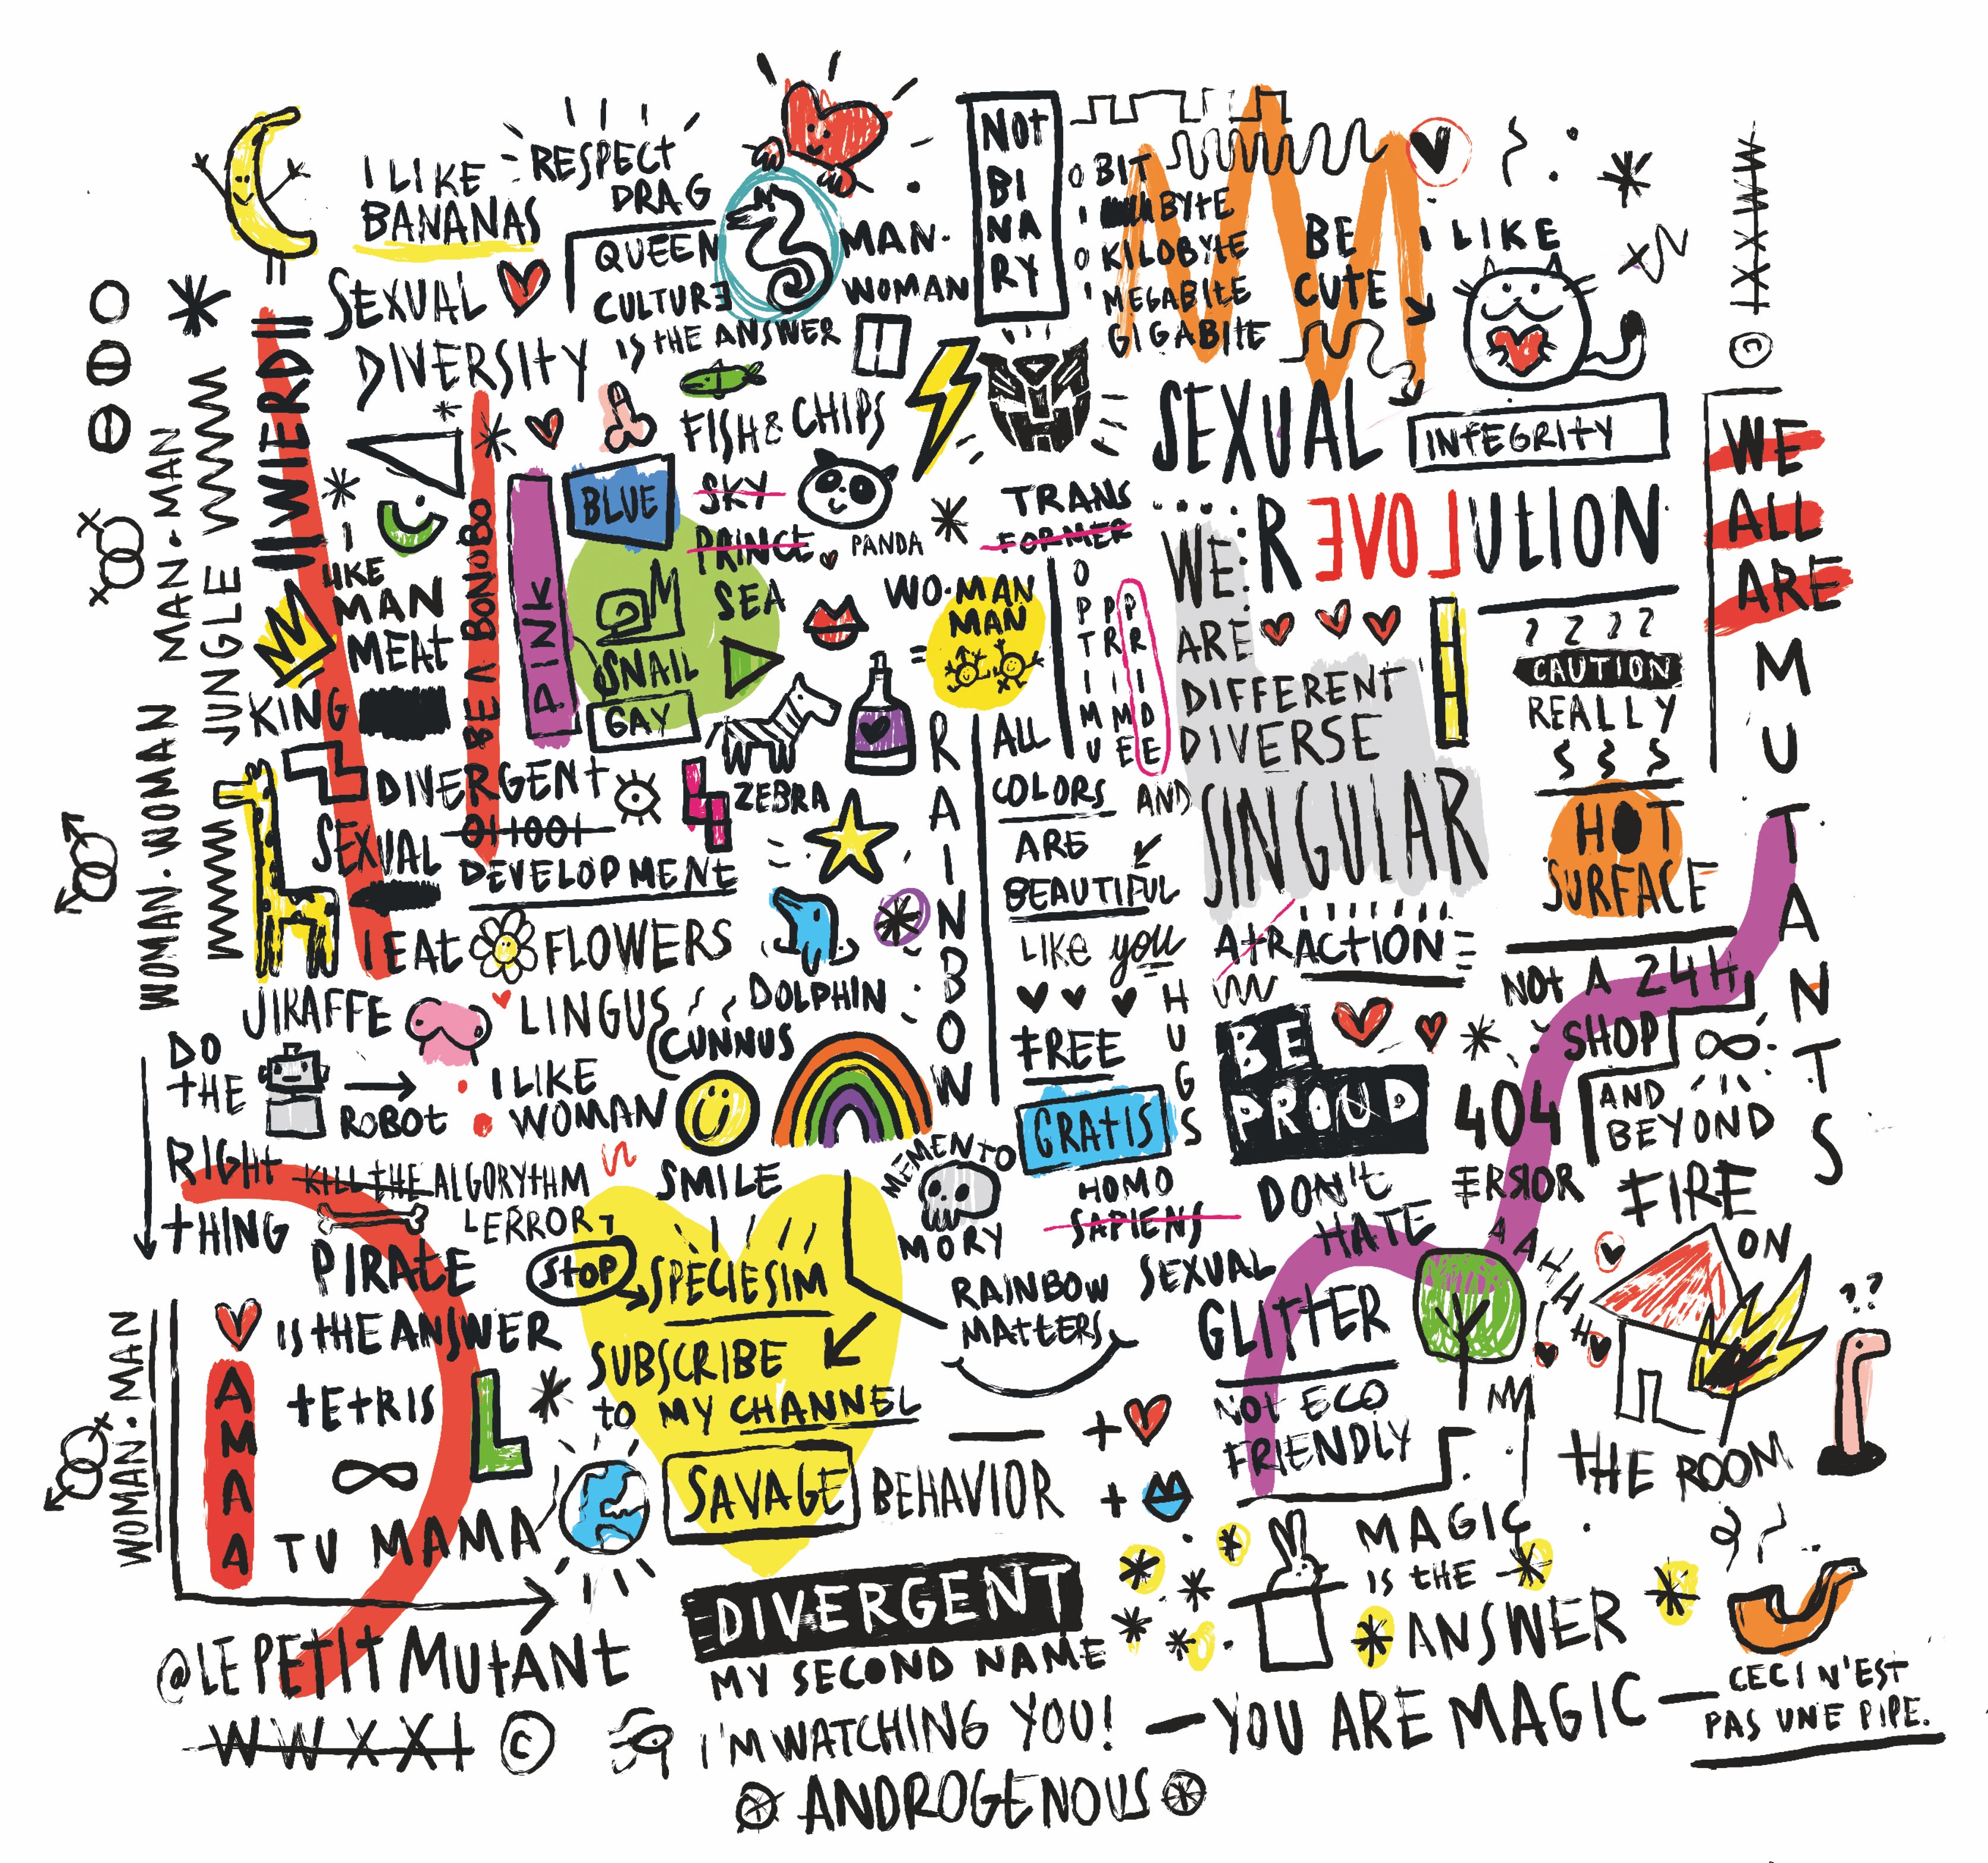 I LIKE
BANANAS
RESPECT
DRAG
QUEEN
CULTURE
IS THE ANSWER
SEXUAL
DIVERSITY
MAN.
WOMAN
NOT
BI
NA
RY
0 BIT
1 BYTE
0 KILOBYTE
1 MEGABITE
GIGABITE
BE
CUTE
I LIKE
WWXXI
©
WIERD
MAN.MAN
JUNGLE
WOMAN.WOMAN
FISH & CHIPS
SEXUAL
INTEGRITY
REVOLUTION
WE
ALL
ARE
MUTANTS
BLUE
SKY
PRINCE
SEA
PANDA
TRANS
FORMER
I
LIKE
MAN
MEAT
BE A BONOBO
PINK
SNAIL
GAY
KING
WO.MAN
MAN
=
OPTIMU
PRIME
PRIDE
WE
ARE
DIFFERENT
DIVERSE
AND
SINGULAR
ATRACTION
????
CAUTION
REALLY
HOT
SURFACE
DIVERGENT
SEXUAL
011001
DEVELOPMENT
ZEBRA
RAINBOW
ALL
COLORS
ARE
BEAUTIFUL
LIKE you
I EAT FLOWERS
JIRAFFE
LINGUS
CUNNUS
DOLPHIN
FREE
HUGS
GRATIS
NOT A 24H
SHOP
BE
PROUD
404
ERROR
AND
BEYOND
DO
THE
ROBOT
RIGHT
THING
I LIKE
WOMAN
SMILE
KILL THE ALGORYTHM
ERROR
PIRATE
IS THE ANSWER
STOP
SPECIESIM
MEMENTO
MORY
HOMO
SAPIENS
DON'T
HATE
AAHHHH
FIRE
ON
THE ROOM
??
RAINBOW
MATTERS
SEXUAL
GLITTER
NOT ECO
FRIENDLY
WOMAN.MAN
AMA
A
TETRIS
TU MAMA
SUBSCRIBE
TO MY CHANNEL
SAVAGE BEHAVIOR
+
+
MAGIC
IS THE
ANSWER
DIVERGENT
MY SECOND NAME
@LEPETITMUTANT
WWXXI ©
I'M WATCHING YOU!
—YOU ARE MAGIC—
CECI N'EST
PAS UNE PIPE.
ANDROGENOUS